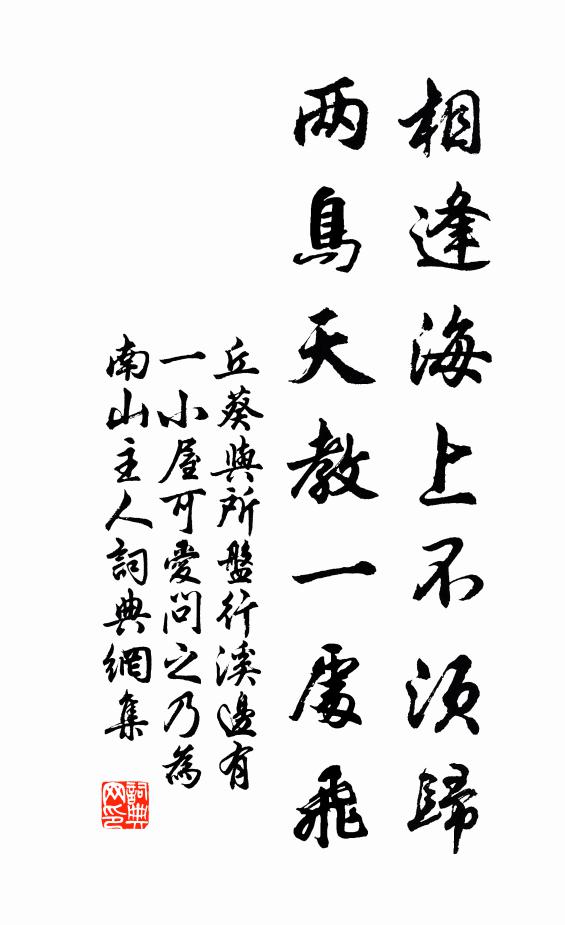 相逢海上不須歸
两鳥天教一處飛
丘葵與所盤行溪邊有
一小屋可愛問之乃為
南山主人詞典網集
詞典網印